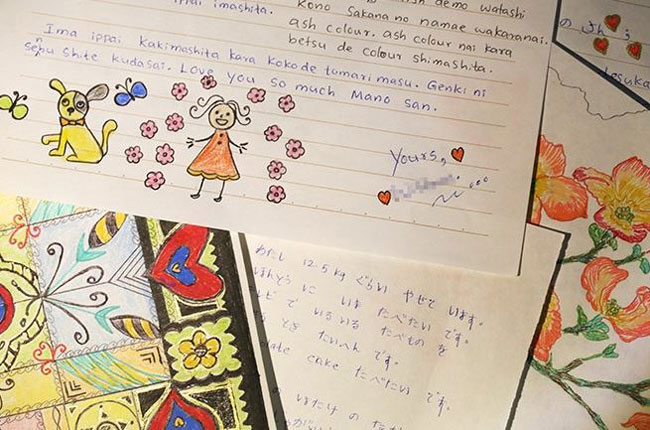 ippai imashita.
demo watashi
Kono Sakana no namae wakaranai.
ash colour. ash colour nai kara
betsu de colour shimashita.
Ima ippai kakimashita kara koko de tomari masu. Genki ni
shite kudasai. Love you so much Mano san.
Yours,
のうれ
わたし 12.5 kg ぐらい やせて います。
ほんとう に いま たべたい です。
で いろいろ たべもの を
とき たいへん です。
cake たべたい です。